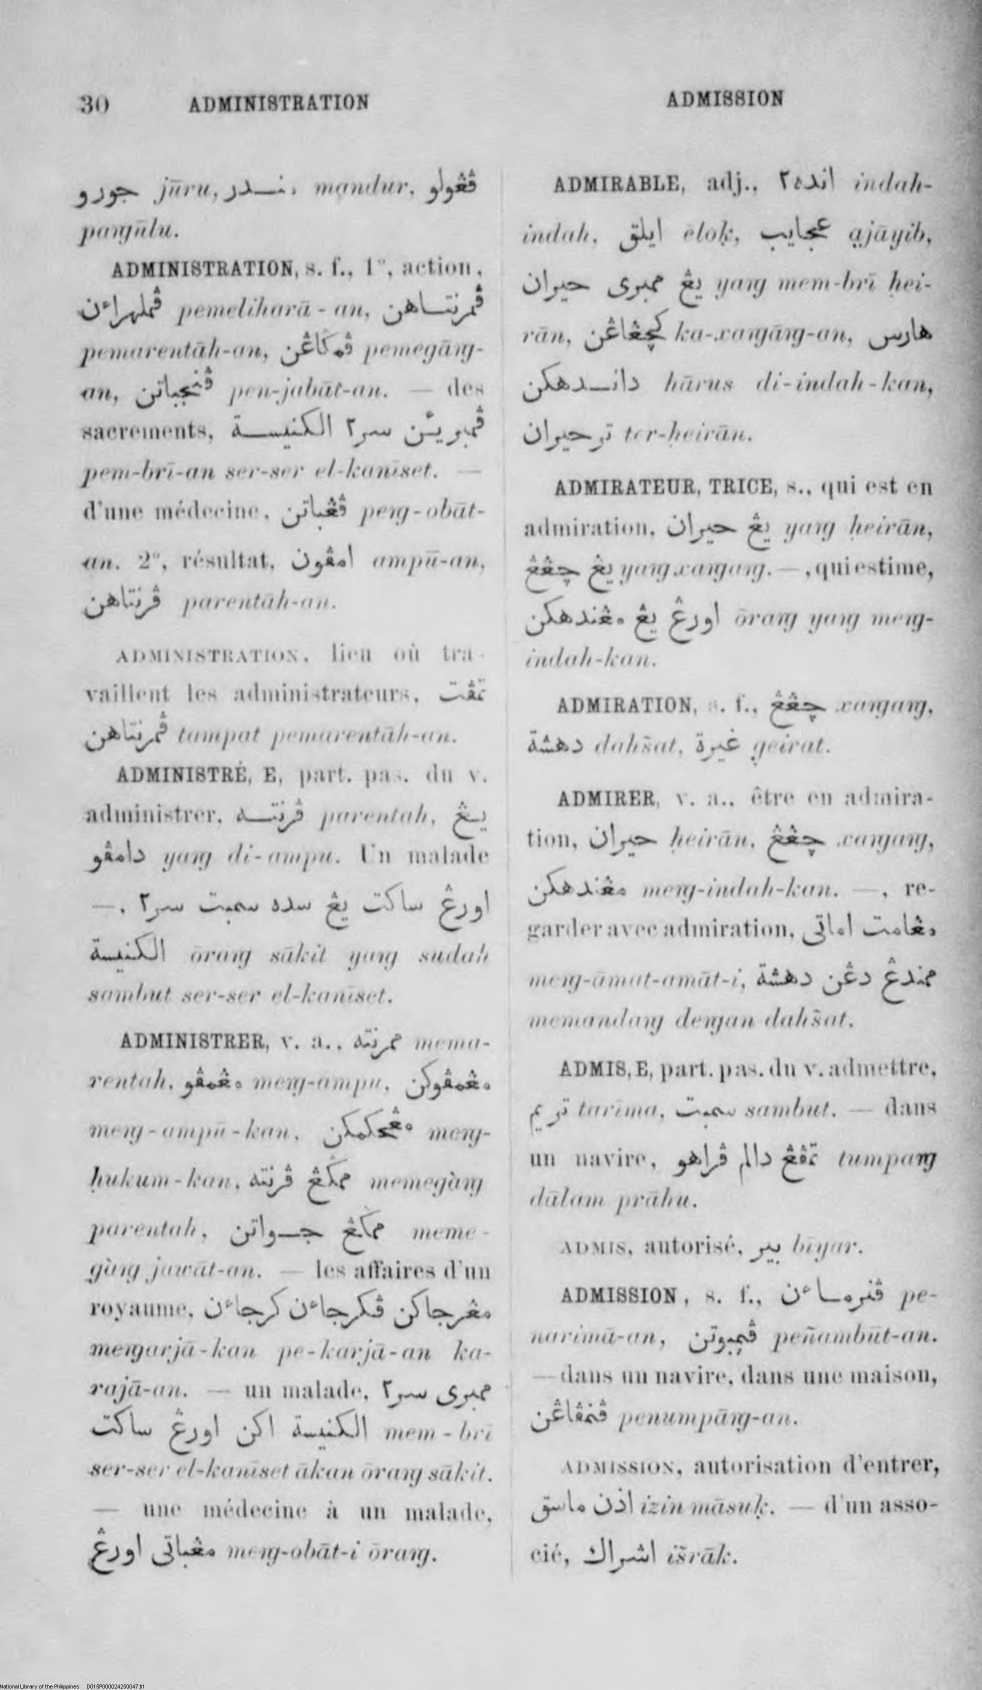 30 ADMINISTRATION
ADMISSION
جورو jūru, مندر mandur, ڤڠولو
paṅgūlu.
ADMINISTRATION, s. f., 1°, action,
ڤملهراءن pemeliharā-an, ڤمرنتاهن
pemarentāh-an, ڤمڬاڠن pemegāṅg-
an, ڤنجباتن pen-jabāt-an. — des
sacrements, ڤمبريئن سر٢ الكنيسة
pem-brī-an ser-ser el-kanīset. —
d'une médecine, ڤڠباتن peṅg-obāt-
an. 2°, résultat, امڤون ampū-an,
ڤرنتاهن parentāh-an.
ADMINISTRATION, lieu où tra-
vaillent les administrateurs, تمڤت
ڤمرنتاهن tampat pemarentāh-an.
ADMINISTRÉ, E, part. pas. du v.
administrer, ڤرنته parentah, يڠ
دامڤو yaṅg di-ampu. Un malade
—, اورڠ ساكت يڠ سده سمبت سر٢
الكنيسة ōraṅg sākit yaṅg sudah
sambut ser-ser el-kanīset.
ADMINISTRER, v. a., ممرنته mema-
rentah, مڠمڤو meṅg-ampu, مڠمڤوكن
meṅg-ampū-kan, مڠحكمكن meṅg-
ḥukum-kan, ممڬڠ ڤرنته memegàṅg
parentah, ممڬڠ جواتن meme-
gàṅg jawāt-an. — les affaires d'un
royaume, مڠرجاكن ڤكرجاءن كرجاءن
meṅgarjā-kan pe-karjā-an ka-
rajā-an. — un malade, ممبرى سر٢
الكنيسة اكن اورڠ ساكت mem-brī
ser-ser el-kanīset ākan ōraṅg sākit.
— une médecine à un malade,
مڠباتى اورڠ meṅg-obāt-i ōraṅg.
ADMIRABLE, adj., انده٢ indah-
indah, ايلق ēloḳ, عجايب ạjāyib,
يڠ ممبرى حيران yaṅg mem-brī ḥei-
rān, كچڠاڠن ka-xaṅgāṅg-an, هارس
داندهكن hārus di-indah-kan,
ترحيران ter-ḥeirān.
ADMIRATEUR, TRICE, s., qui est en
admiration, يڠ حيران yaṅg ḥeirān,
يڠ چڠڠ yaṅg xaṅgaṅg. —, qui estime,
اورڠ يڠ مڠندهكن ōraṅg yaṅg meṅg-
indah-kan.
ADMIRATION, s. f., چڠڠ xaṅgaṅg,
دهشة dahšat, غيرة geirat.
ADMIRER, v. a., être en admira-
tion, حيران ḥeirān, چڠڠ xaṅgaṅg,
مڠندهكن meṅg-indah-kan. —, re-
garder avec admiration, مڠامت اماتى
meṅg-āmat-amāt-i, ممندڠ دڠن دهشة
memandaṅg deṅgan dahšat.
ADMIS, E, part. pas. du v. admettre,
تريم tarīma, سمبت sambut. — dans
un navire, تمڤڠ دالم ڤراهو tumpaṅg
dālam prāhu.
ADMIS, autorisé, بير bīyar.
ADMISSION, s. f., ڤنرماءن pe-
narimā-an, ڤمبوتن peñambūt-an.
— dans un navire, dans une maison,
ڤنمڤاڠن penumpāṅg-an.
ADMISSION, autorisation d'entrer,
اذن ماسق izin māsuḳ. — d'un asso-
cié, اشراك išrāk.
National Library of the Philippines